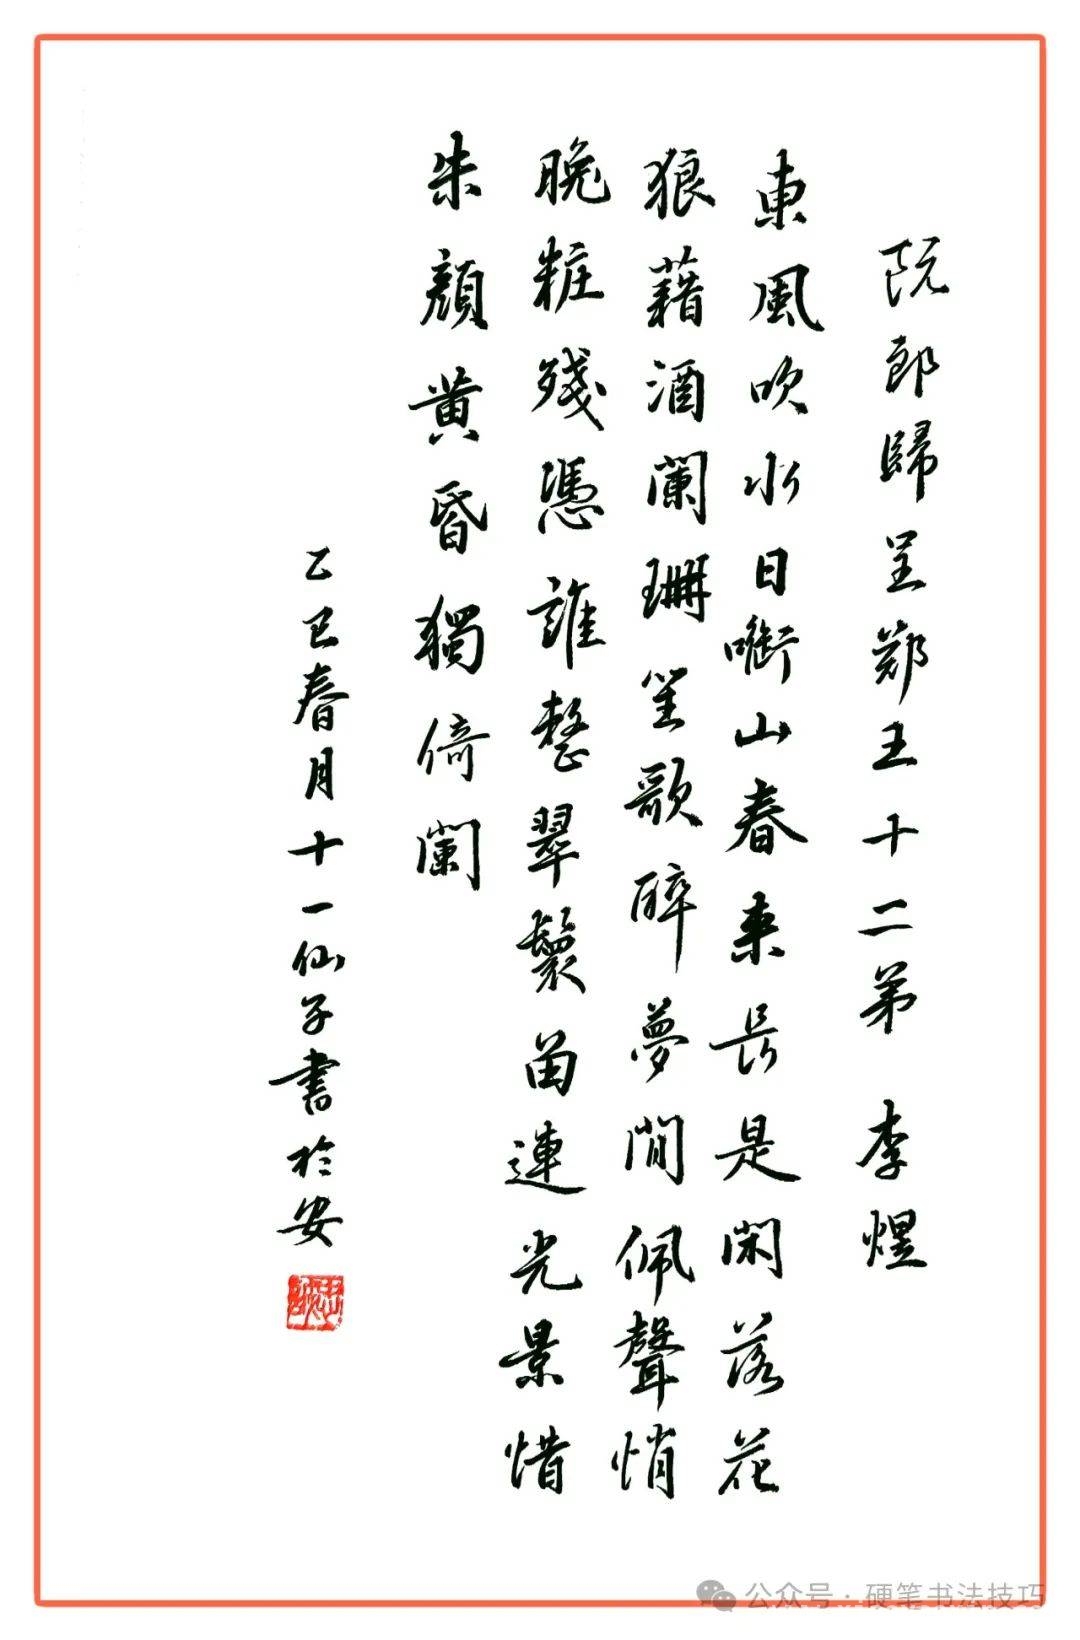 阮郎歸呈鄭王十二弟 李煜
東風吹水日啣山春来長是閑落花
狼藉酒闌珊笙歌醉夢間佩聲悄
晚粧殘憑誰整翠鬟留連光景惜
朱顏黄昏獨倚闌
乙巳春月十一仙子書於安
公众号·硬笔书法技巧